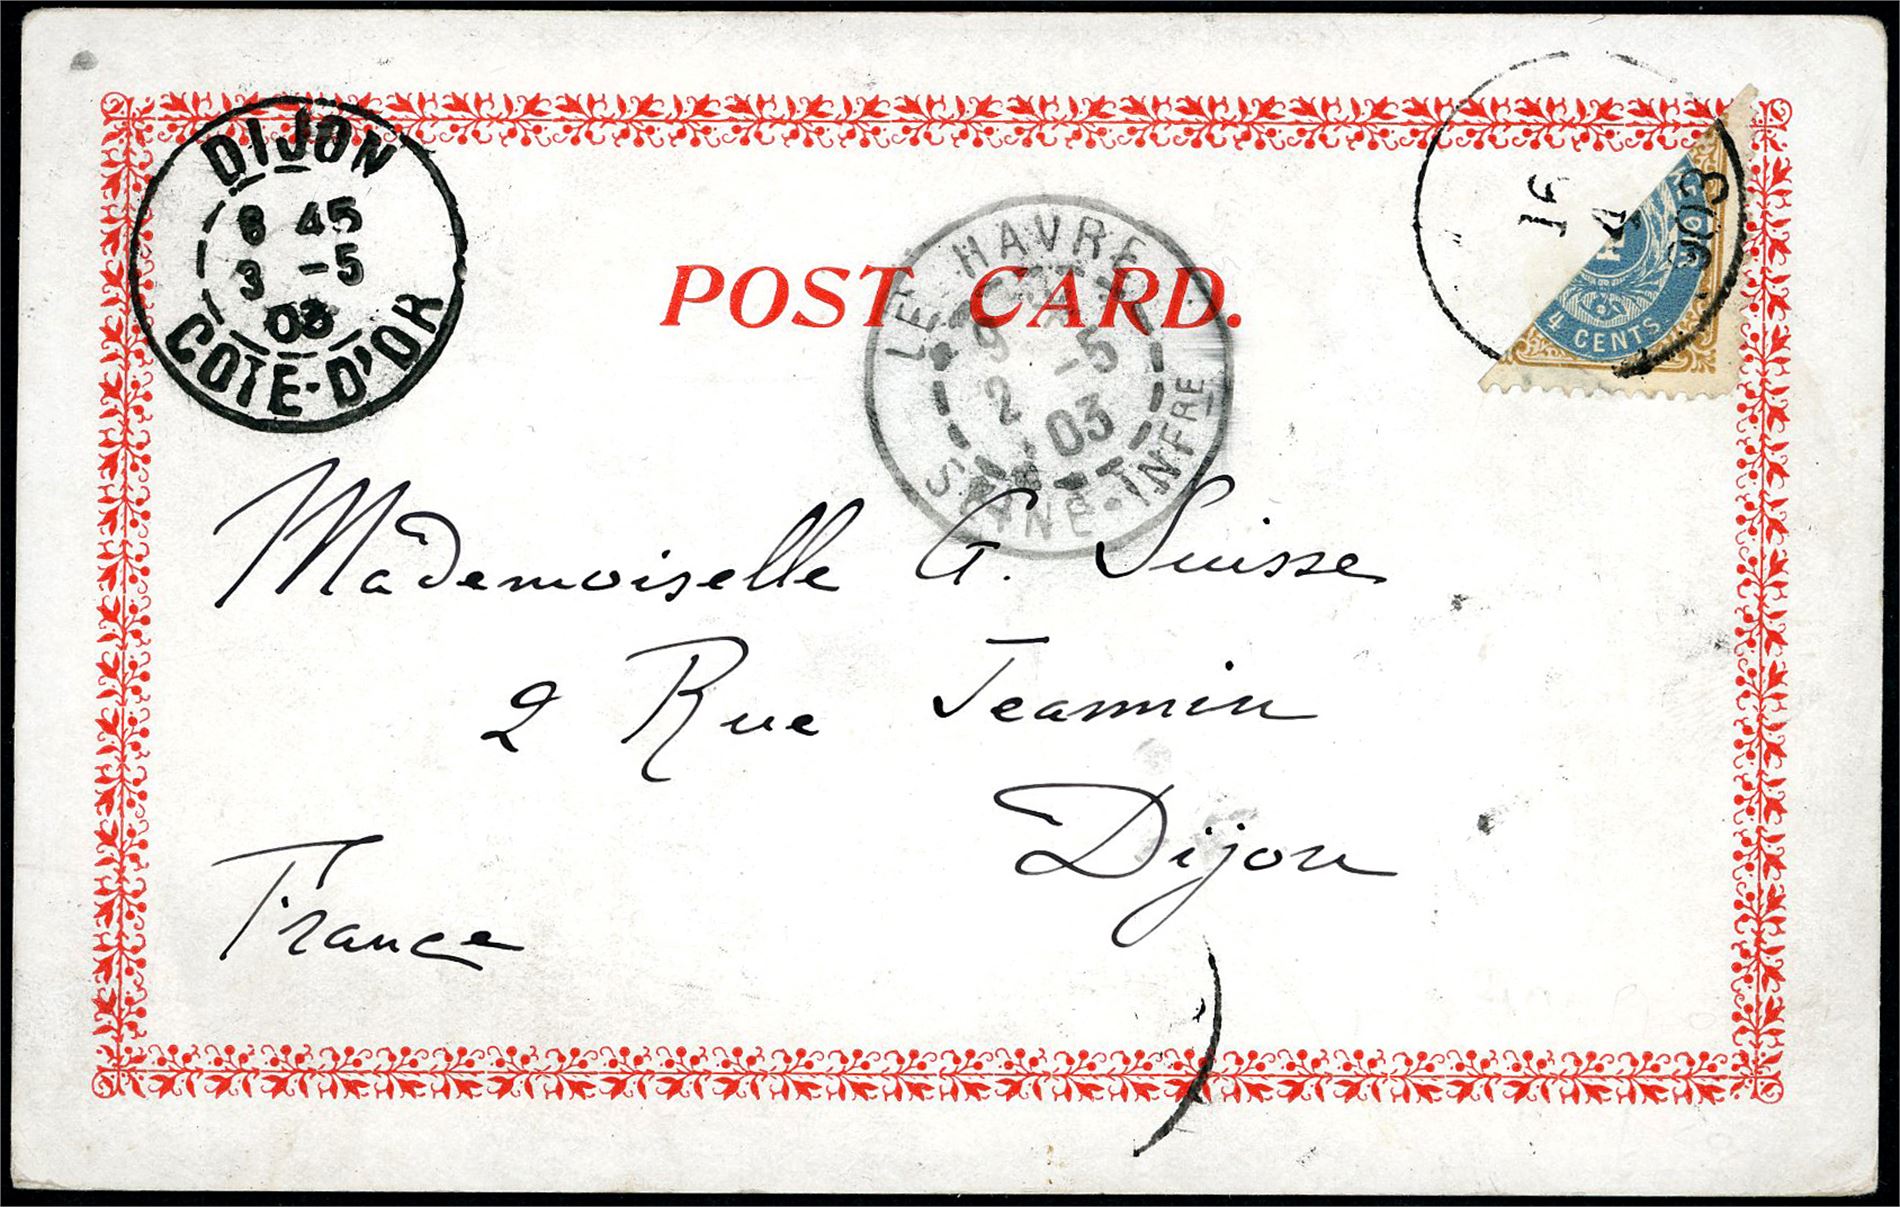 DIJON
8 45
3 -5
03
COTE-D'OR
POST CARD.
LE HAVRE
9
2 -5
03
SEINE-INFRE
16
4
1903
4 CENTS
Mademoiselle G. Suisse
2 Rue Jeannin
Dijon
France